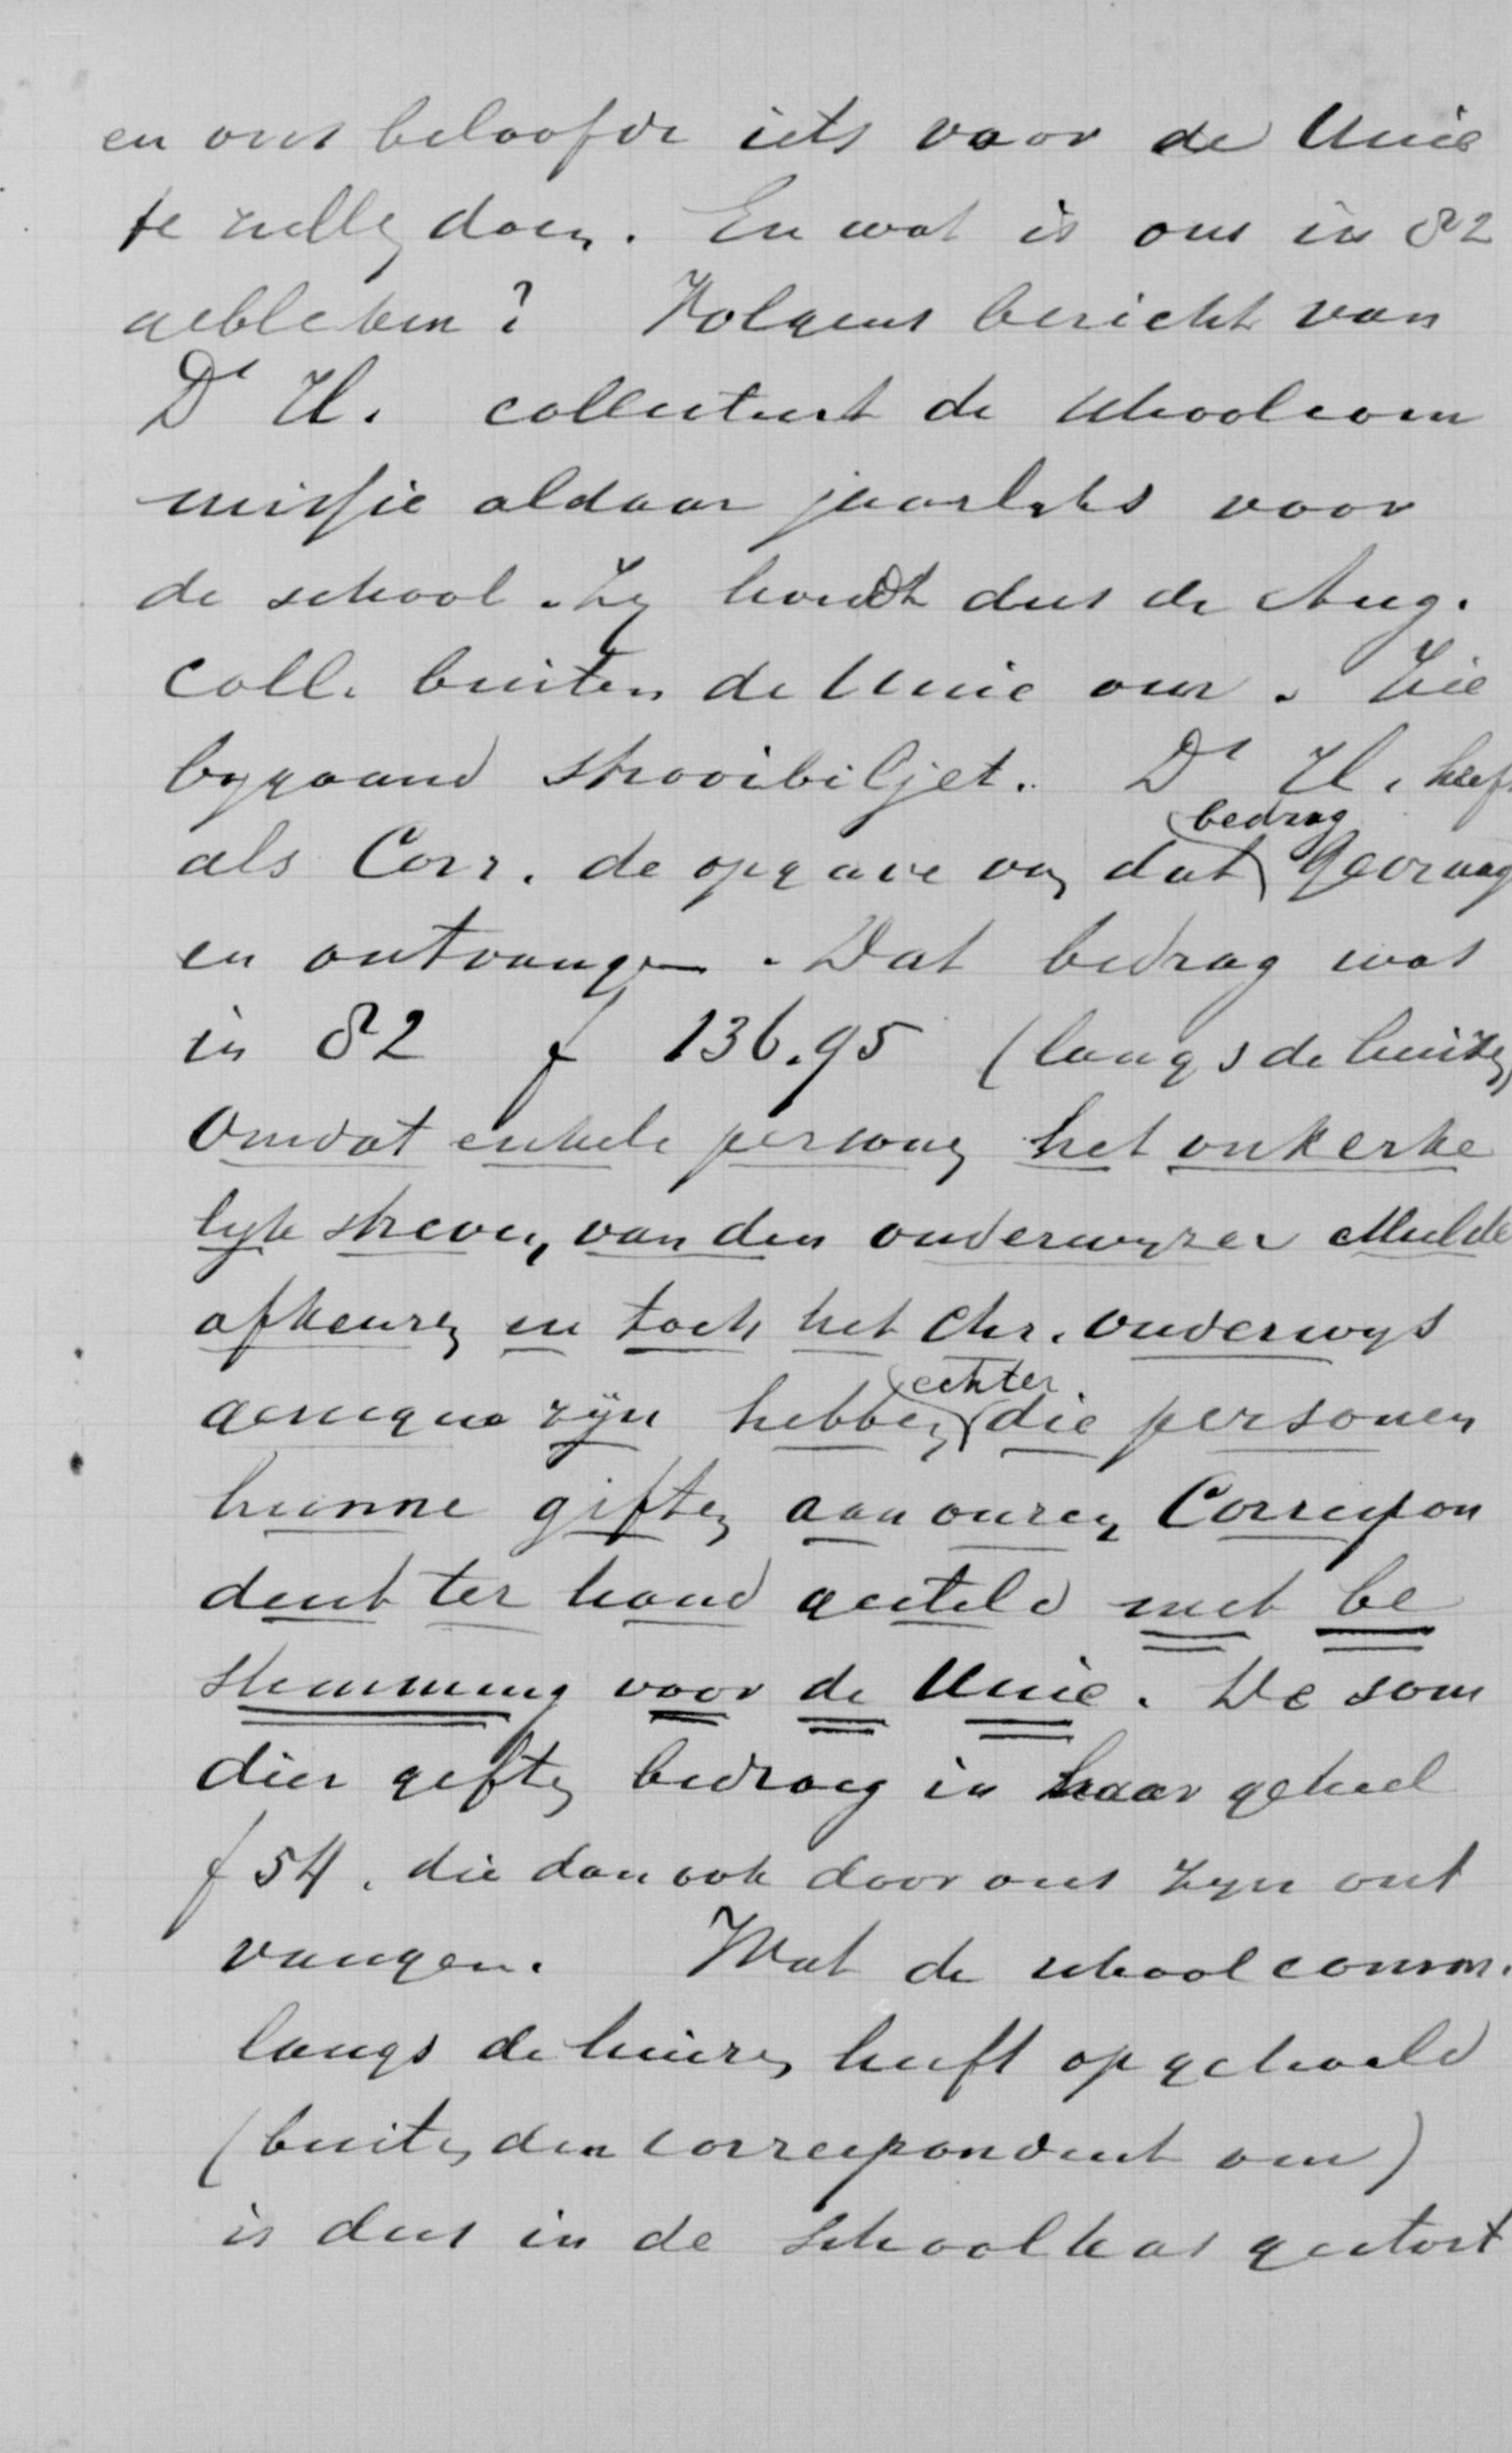 en ons beloofde iets voor de Unie
te zullen doen. En wat is ons in 82
gebleken? Volgens bericht van
Ds H. collecteert de schoolcom
missie aldaar jaarlyks voor
de school. Zy houdt dus de Aug.
Coll. buiten de Unie om. Zie
bygaand strooibiljet. Ds H. heeft
als Corr. de opgave van dat bedrag gevraagd
en ontvangen. Dat bedrag was
in 82 f 136.95 (langs de huizen)
Omdat enkele personen het onkerke
lyk streven van den onderwyzer Mulder
afkeuren en toch het Chr. onderwys
genegen zyn hebben echter die personen
hunne giften aan onzen Correspon
dent ter hand gesteld met be
stemming voor de Unie. De som
dier giften bedroeg in haar geheel
f 54. die dan ook door ons zyn ont
vangen. Wat de schoolcomm.
langs de huizen heeft opgehaald
(buiten den correspondent om)
is dus in de schoolkas gestort